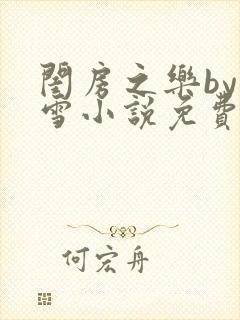 閨房之樂by
雪小說免費
何宏舟